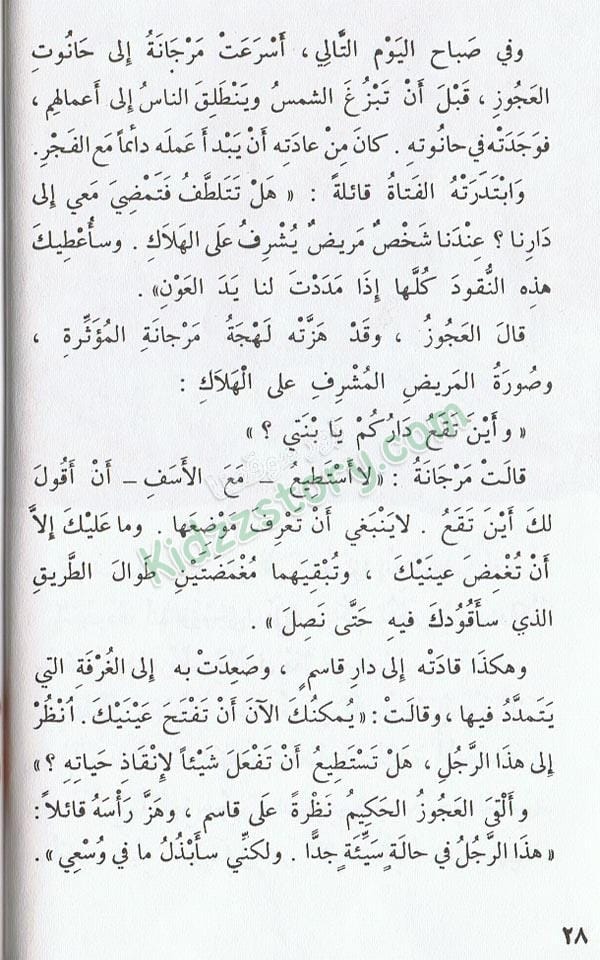 وفي صَباح اليَوْم التَّالِي، أَسْرَعَتْ مَرْجَانَةُ إلى حَانُوتِ
العَجُوزِ، قَبْلَ أَنْ تَبْزُغَ الشمسُ ويَنْطَلِقَ الناسُ إلى أعمالهِم،
فوَجَدَتْه في حانُوتهِ. كانَ مِنْ عادَتِه أَنْ يَبْدأَ عَملَه دائماً مَع الفَجْرِ.
وَابْتَدَرَتْهُ الفَتاةُ قائلةً: «هَلْ تَتَلطَّفُ فَتَمْضِيَ مَعي إلى
دَارِنا؟ عِنْدَنا شَخْصٌ مَريضٌ يُشْرِفُ عَلى الهَلاَكِ. وسأُعْطِيكَ
هذِه النُّقودَ كُلَّها إذَا مَدَدْتَ لنا يَدَ العَوْنِ».
قالَ العَجُوزُ، وقَدْ هَزَّتْه لَهْجَةُ مَرْجانَةِ المُؤثِّرةِ،
وصُورَةُ المَريضِ المُشْرِفِ على الْهَلاَكِ:
«وأَيْنَ تَقَعُ دَارُكُمْ يَا بْنَتي؟»
قالَتْ مَرْجَانَةُ: «لا أَسْتطيعُ – مَعَ الأَسَفِ – أَنْ أَقُولَ
لكَ أَيْنَ تَقَعُ. لا يَنْبَغي أَنْ تَعْرِفَ مَوْضِعَها. وما عَليْكَ إلاَّ
أَنْ تُغْمِضَ عينَيْكَ، وتُبْقِيَهما مُغْمَضَتَيْنِ طَوالَ الطَّريقِ
الذي سأَقُودُكَ فيهِ حَتَّى نَصِلَ».
وهكذَا قادَتْه إلى دارِ قاسمٍ، وصَعِدَتْ به إلى الغُرْفَةِ التي
يَتَمدَّدُ فيها، وقالَتْ: «يُمكنُكَ الآنَ أَنْ تَفْتَحَ عَيْنَيْكَ. اُنْظُرْ
إلى هذَا الرَّجُلِ، هَلْ تَسْتطيعُ أَنْ تَفْعَلَ شَيْئاً لإنْقاذِ حَياتِهِ؟»
وأَلْقَى العَجُوزُ الحَكيمُ نَظْرةً عَلَى قاسم، وهَزَّ رَأْسَهُ قائلاً:
«هذَا الرَّجُلُ في حالةٍ سَيِّئَةٍ جدًّا. ولكنِّي سأَبْذُلُ ما في وُسْعِي».
٢٨
Kidzzstory.com